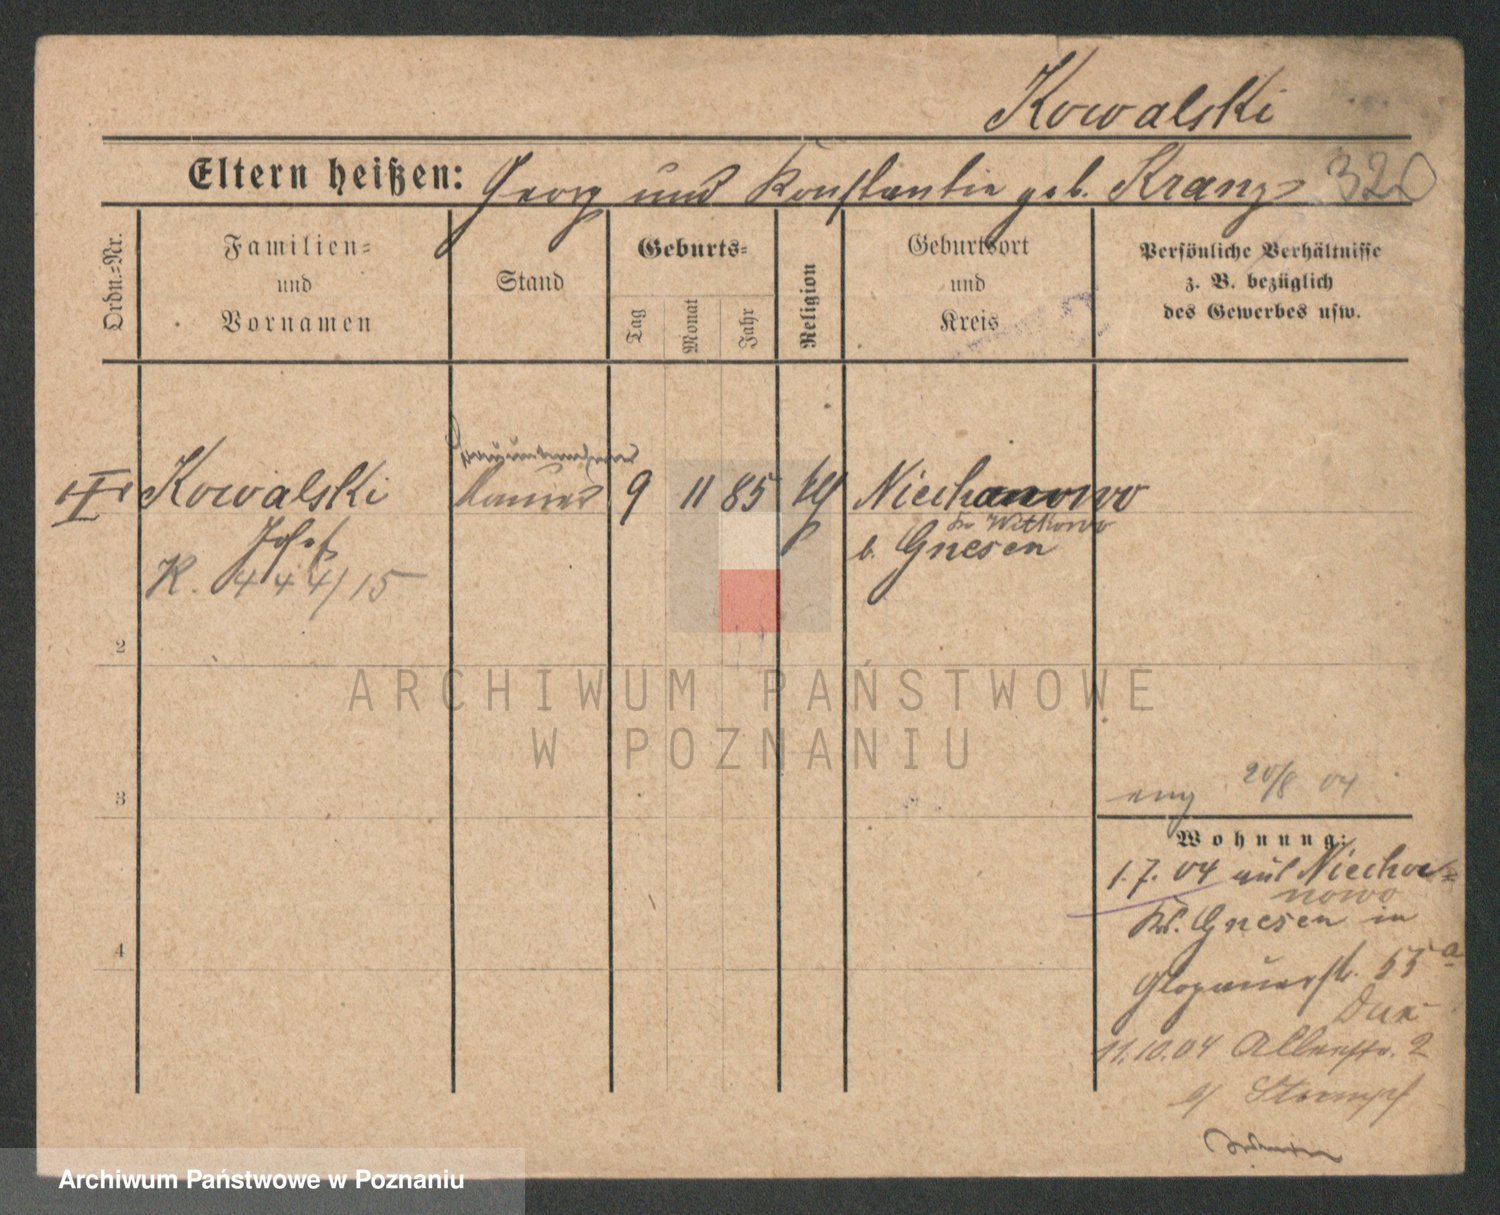 Kowalski
Eltern heißen: Georg und Konstantie geb. Kranz 320
Ordn.-Nr.
Familien-
und
Vornamen
Stand
Geburts-
Tag
Monat
Jahr
Religion
Geburtsort
und
Kreis
Persönliche Verhältnisse
z. B. bezüglich
des Gewerbes usw.
Kowalski 9 11 85 Niechanowo
Josef
Kr. Witkowo
b. Gnesen
K. 444/15
2
ARCHIWUM PAŃSTWOWE
W POZNANIU
3
20/8 04
Wohnung:
1.7.04 aus Niecha-
nowo
Kr. Gnesen in
4
Glogauerstr. 55a
11.10.04 2
b/ Stumpf
Archiwum Państwowe w Poznaniu